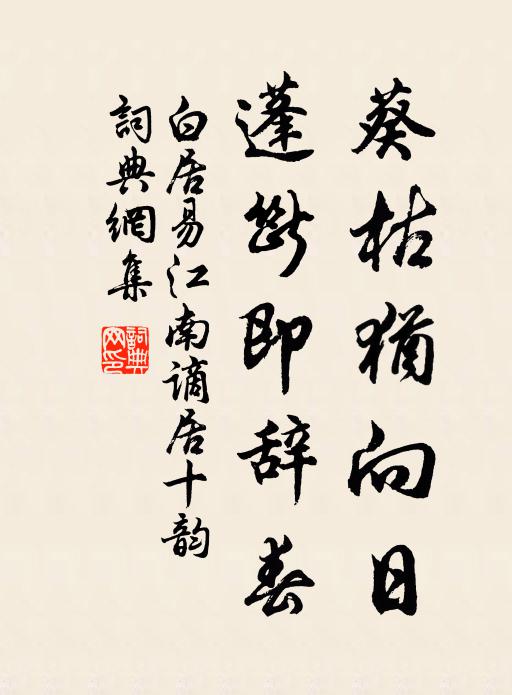 葵枯猶向日
蓬斷即辞春
白居易江南謫居十韵
詞典網集
詞典
网印